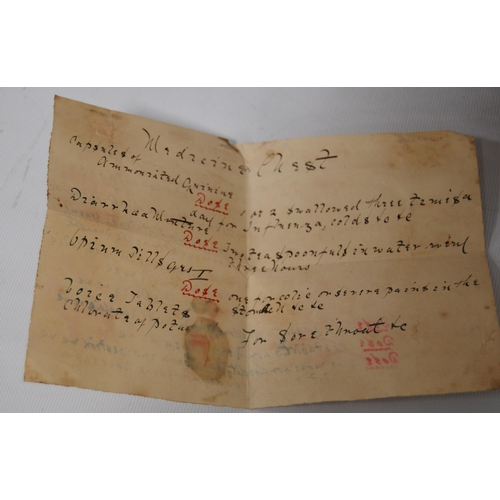 Medicine Chest
Capsules of
Ammoniated Quinine
Dose 1 or 2 swallowed three times a
day for Influenza, colds &c &c
Diarrhoea Mixture
Dose in water every
three hours
Opium Pills grs I
Dose one for colic or severe pains in the
&c &c
Tablets
Chlorate of Potas
For Sore throat &c
Dose
Dose